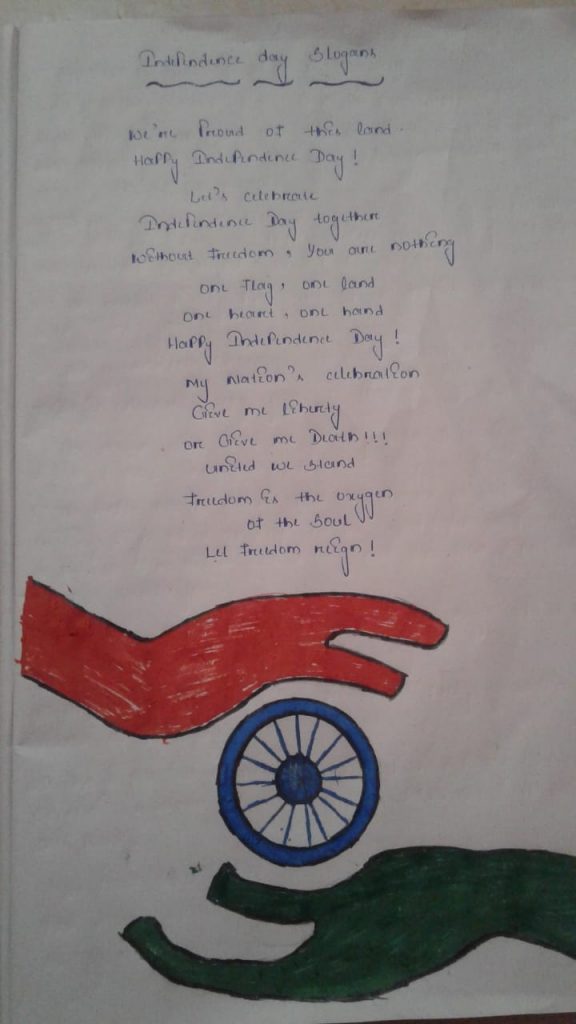 Independence day Slogans
We're Proud of this land.
Happy Independence Day!
Let's celebrate
Independence Day together
Without Freedom, You are nothing
one Flag, one land
one heart, one hand
Happy Independence Day!
My Nation's celebration
Give me liberty
or Give me Death!!!
united we stand
Freedom is the oxygen
of the Soul
Let Freedom reign!